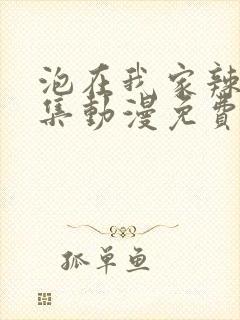 泡在我家辣
集動漫免費
孤單鱼